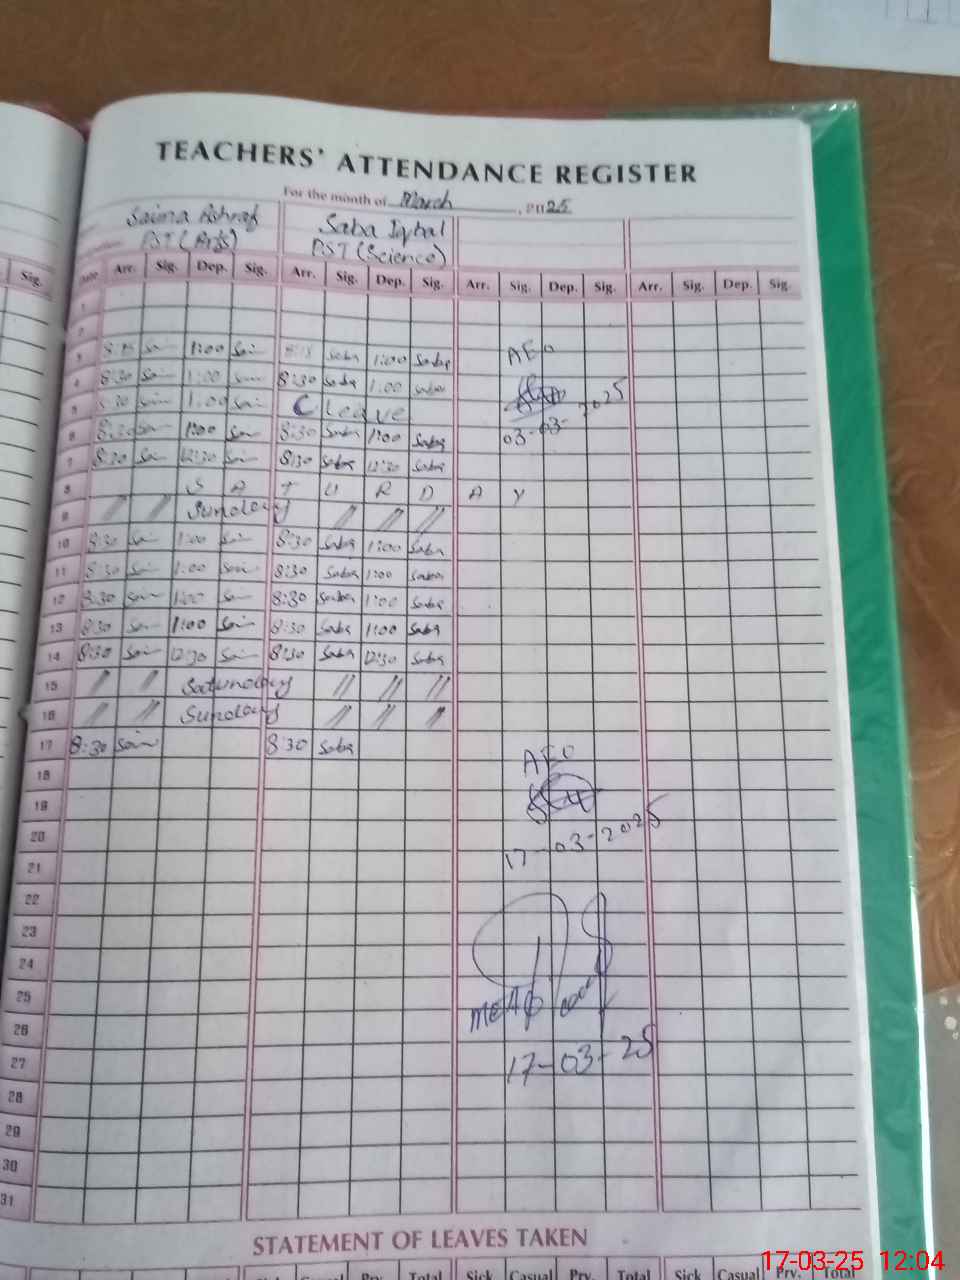 TEACHERS' ATTENDANCE REGISTER
For the month of March, 2025
Saima Ashraf Saba Iqbal
PST (Arts) PST (Science)
Sig. Date Arr. Sig. Dep. Sig. Arr. Sig. Dep. Sig. Arr. Sig. Dep. Sig. Arr. Sig. Dep. Sig.
1
2
3 1:00 Saba 1:00 Saba AEO
4 8:30 1:00 8:30 Saba 1:00 Saba
5 1:00 C Leave 2025
6 8:30 1:00 8:30 Saba 1:00 Saba 03-03-
7 8:30 12:30 8:30 Saba 12:30 Saba
8 S A T U R D A Y
9 // // Sunday // // //
10 8:30 Sai 1:00 Sai 8:30 Saba 1:00 Saba
11 8:30 Sai 1:00 Sai 8:30 Saba 1:00 Saba
12 8:30 Sai 1:00 Sai 8:30 Saba 1:00 Saba
13 8:30 Sai 1:00 Sai 8:30 Saba 1:00 Saba
14 8:30 Sai 12:30 Sai 8:30 Saba 12:30 Saba
15 // // Saturday // // //
16 // // Sunday // // //
17 8:30 Sai 8:30 Saba
18 AEO
19
20 17-03-2025
21
22
23
24
25
26 MEA
27 17-03-25
28
29
30
31
STATEMENT OF LEAVES TAKEN
Sick Casual Prv. Total Sick Casual Prv. Total Sick Casual Prv. Total
17-03-25 12:04